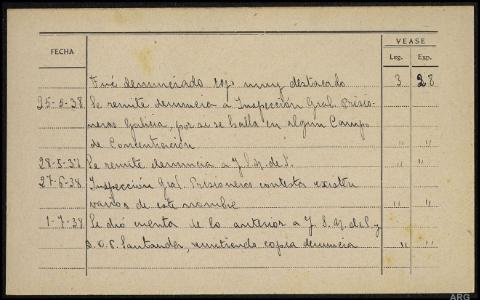 VEASE
FECHA Leg. Exp.
Fué denunciado rojo muy destacado 3 28
25-5-38 Se remite denuncia a Inspección Gral. Prisio-
neros Galicia, por si se halla en algún Campo
de Concentración " "
28-5-38 Se remite denuncia a J. S. M. de S. " "
27-6-38 Inspección Gral. Prisioneros contesta existen
varios de este nombre " "
1-7-38 Se dió cuenta de lo anterior a J. S. M. de S. y
Santander, remitiendo copia denuncia " "
ARG